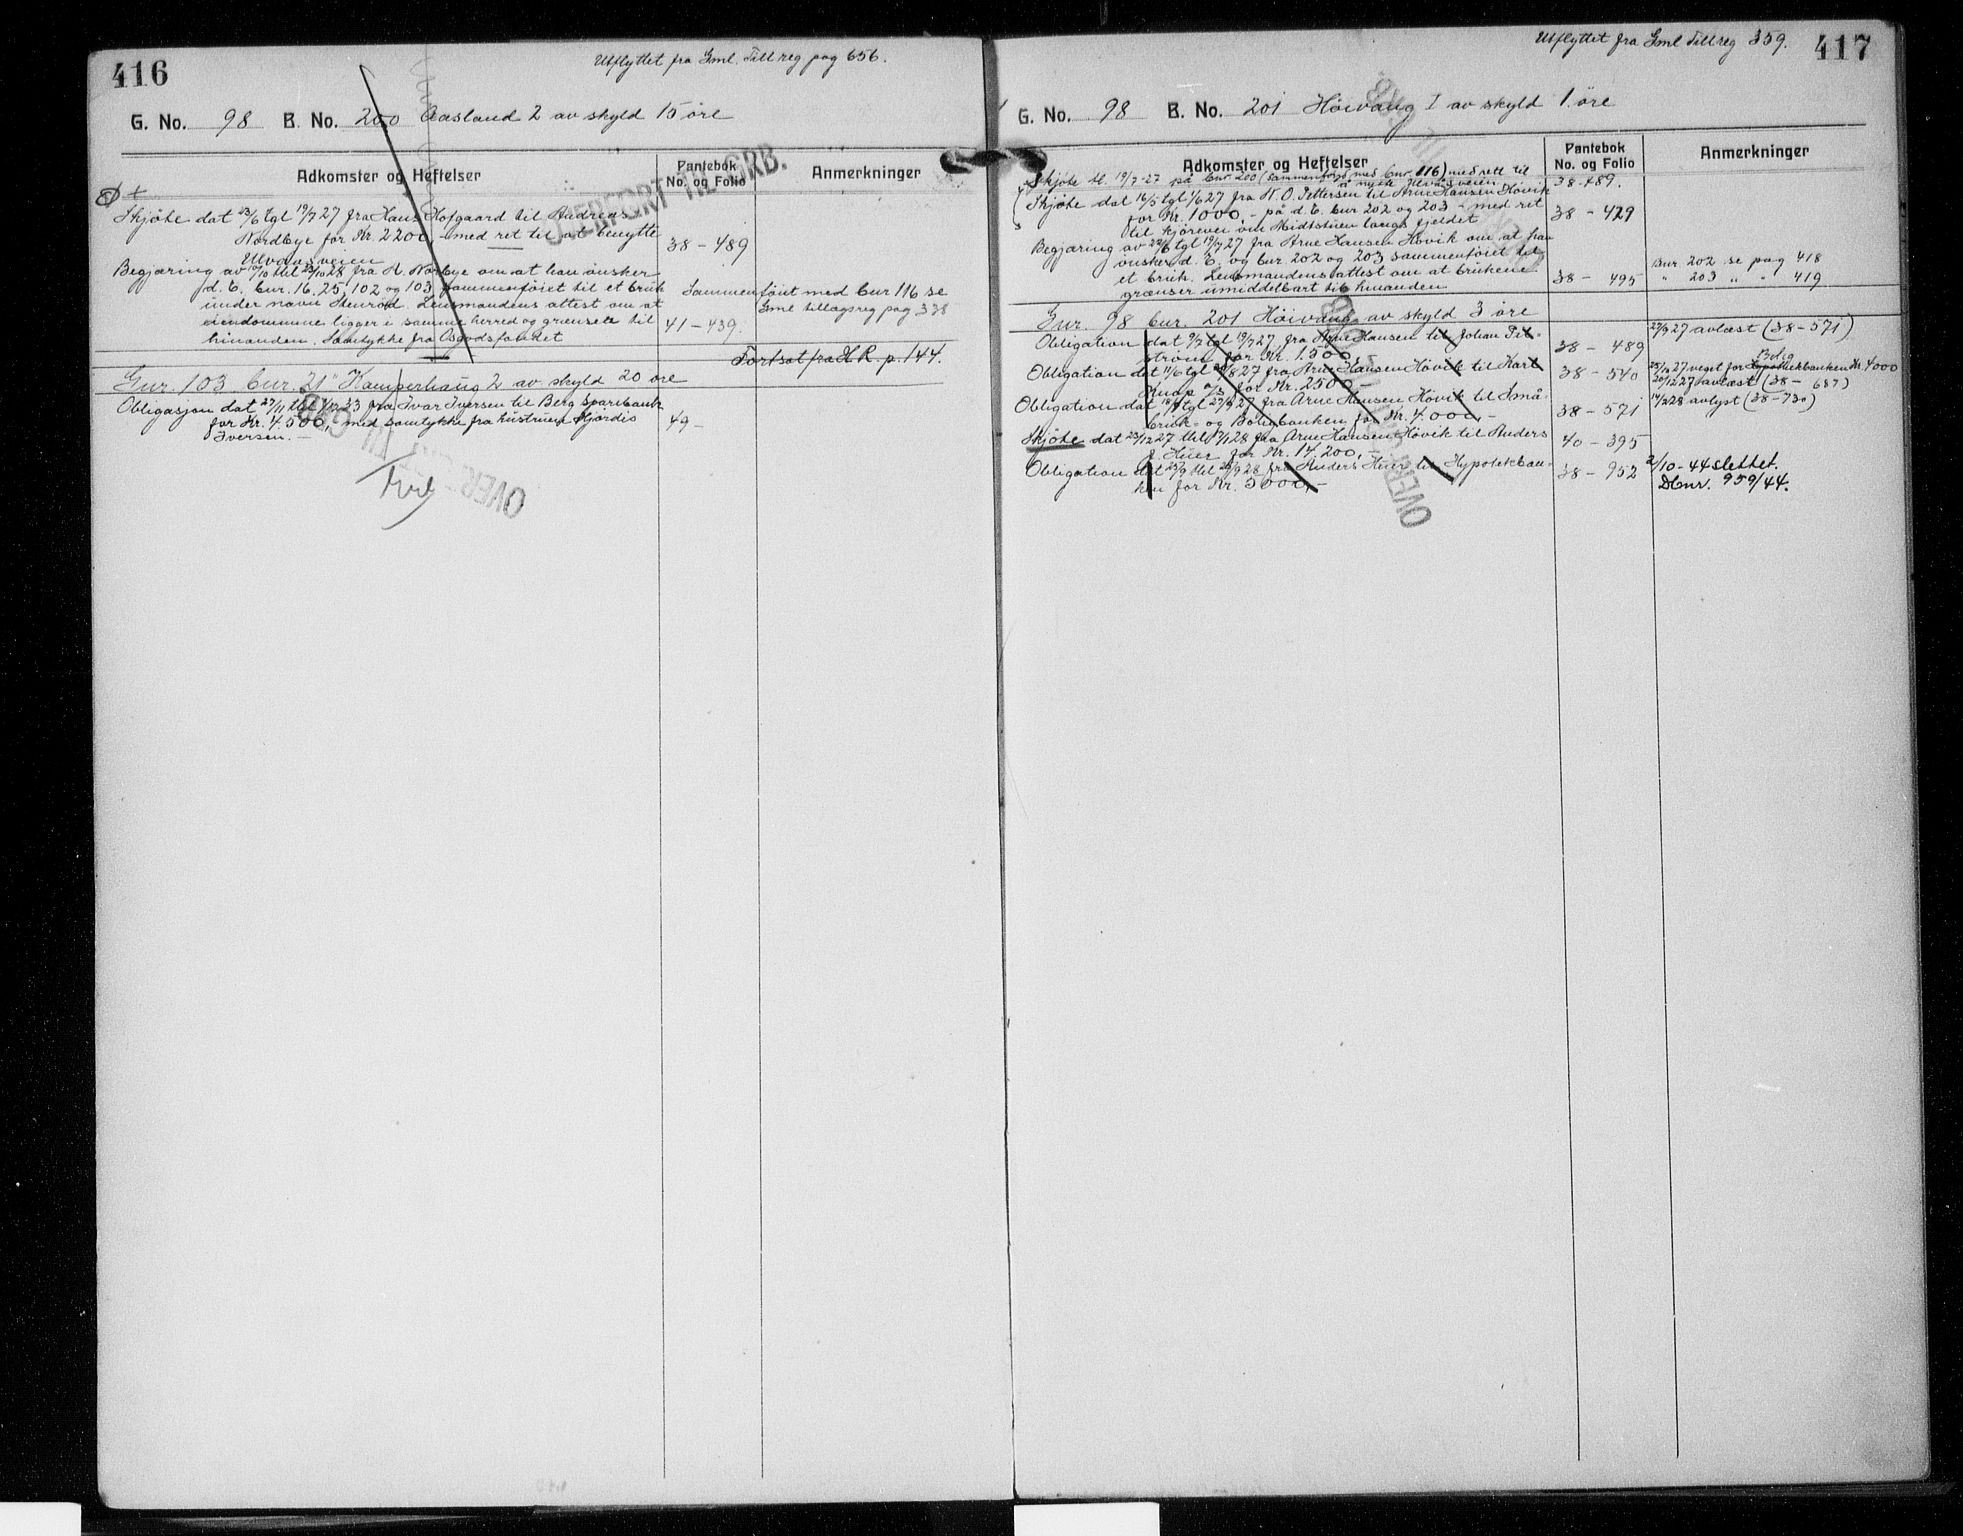 416
Utflyttet fra Gml. Till reg pag 656.
G. No. 98 B. No. 200 Aasland 2 av skyld 15 öre
Adkomster og Heftelser
Pantebok
No. og Folio
Anmerkninger
OVERFØRT TIL GRB.
Skjöte dat 23/6 tgl 19/7 27 fra Hans Hofgaard til Andreas
Nordbye for Kr. 2200,- med ret til at benytte
38 - 489
Ulvaasveien
Begjæring av 10/10 tlst 23/10 28 fra A. Norbye om at han önsker
d. E. bur. 16, 25, 102 og 103 sammenföiet til et bruk
Sammenföiet med bur 116 se
under navn Stenröd. Lensmandens attest om at
Gml tillægsreg pag 338
eiendommene ligger i samme herred og grænser til
41 - 439.
hinanden. Samtykke fra Osgodsfondet
Fortsat fra H.R. p. 144.
Gnr. 103 bnr. 21 "Kamperhaug 2 av skyld 20 öre
Obligasjon dat 27/11 tlgl 1/12 33 fra Ivar Iversen til Berg Sparebank
for Kr. 4.500,- med samtykke fra hustruen Hjördis
49 -
Iversen. -
OVERFØRT TIL GRB.
417
Utflyttet fra Gml Till reg 359.
G. No. 98 B. No. 201 Höivang I av skyld 1. öre
Adkomster og Heftelser
Pantebok
No. og Folio
Anmerkninger
Skjöte tl. 19/7-27 på bnr 200 (sammenföyd med bnr. 116) med rett til
å nytte Ulvåsveien
38-489.
Skjöte dat 16/5 tgl 1/6 27 fra N. O. Pettersen til Arne Hansen Hövik
for Kr. 1000,- på d. E. bur 202 og 203 - med ret
38 - 429
til kjöreveu om Midtstuen langs fjeldet
Begjæring av 22/6 tgl 19/7 27 fra Arne Hansen Hövik om at han
önsker d. E. og bur 202 og 203 sammenföiet til
Bur 202 se pag 418
et bruk. Lensmandens attest om at brukene
38 - 495
" 203 " " 419
grænser umiddelbart til hinanden
Gnr. 98 bnr. 201 Höivang av skyld 3 öre
27/9 27 avlæst (38-571)
Obligation dat 9/7 tgl 19/7 27 fra Arne Hansen til Johan Pet-
ström for Kr. 1.500,-
38 - 489
Obligation dat 11/6 tgl 30/8 27 fra Arne Hansen Hövik til Karl
Knap a/s for Kr. 2500,-
38 - 540
Bolig
25/10 27 veget for Hypothekbanken Kr. 4000
20/12 27 avlæst (38 - 687)
Obligation dat 18/9 tgl 27/9 27 fra Arne Hansen Hövik til Små-
bruk- og Boligbanken for Kr. 4.000,-
38 - 571
14/2 28 avlyst (38-730)
Skjöte dat 23/12 27 tlst 17/1 28 fra Arne Hansen Hövik til Anders
J. Heier for Kr. 14.200,-
40 - 395
Obligation dat 25/9 tlst 25/9 28 fra Anders Heier til Hypotekban-
ken for Kr. 5000,-
38 - 952
2/10-44 slettet.
Dbnr. 959/44.
OVERFØRT TIL GRB.